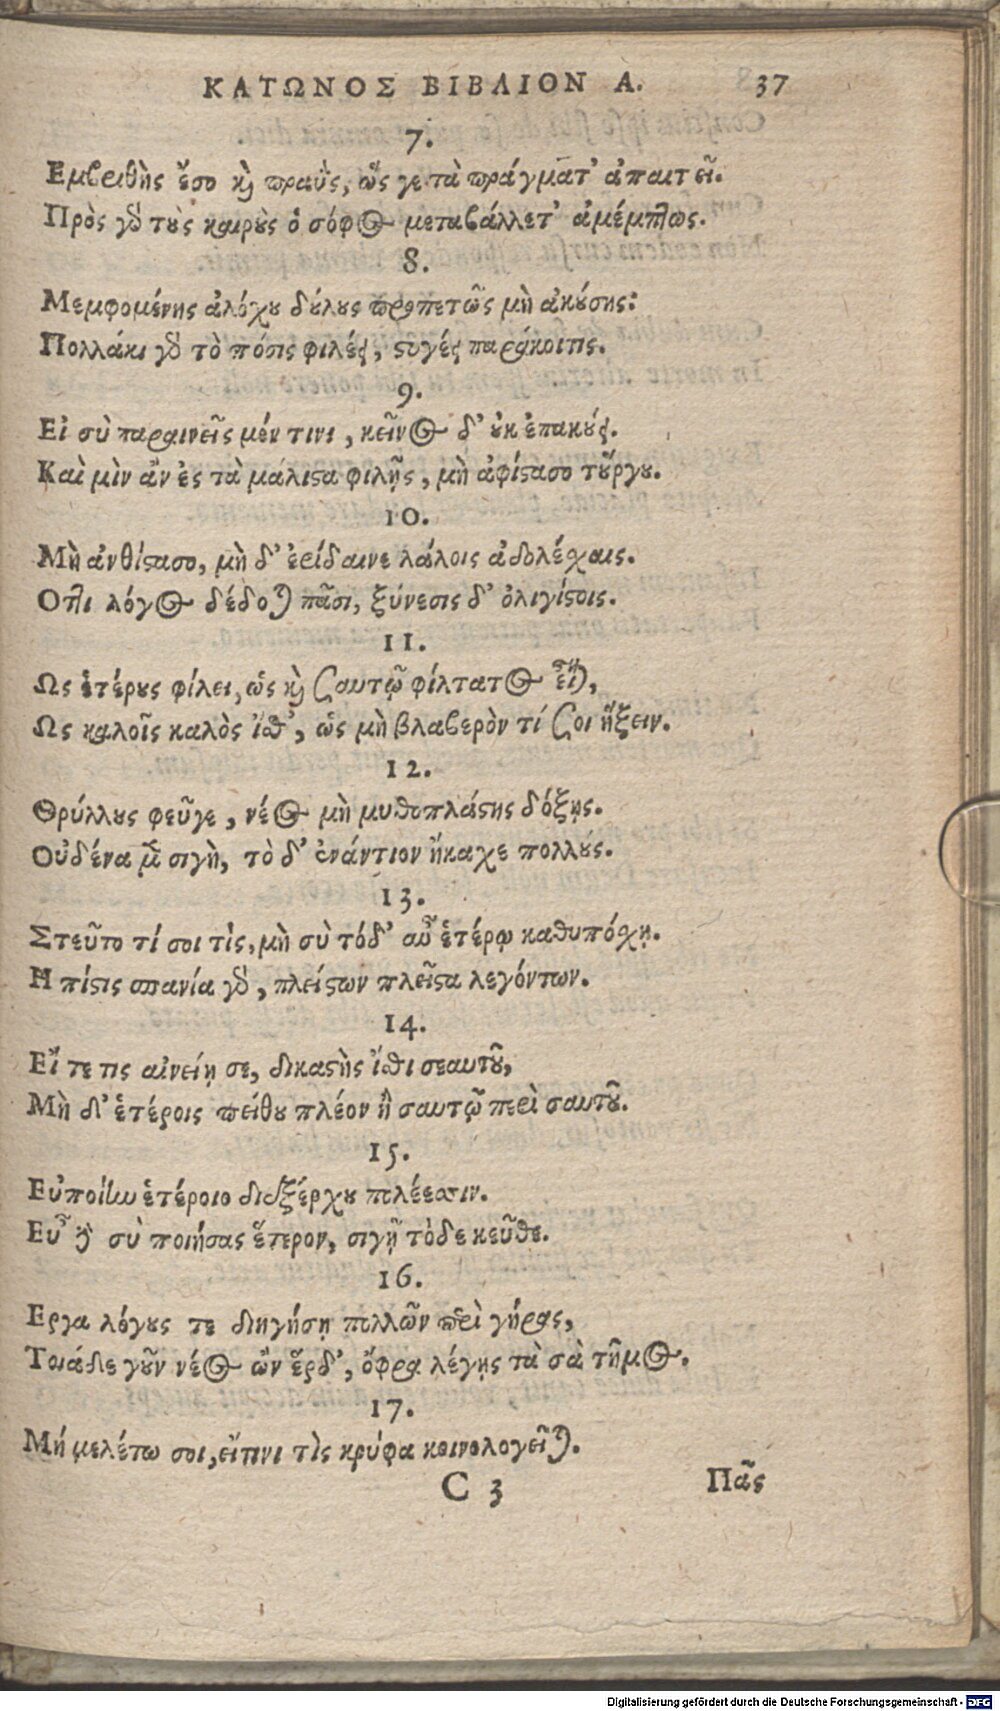 ΚΑΤΩΝΟΣ ΒΙΒΛΙΟΝ Α. 37
7.
Εμβριθὴς ἔσο καὶ πραῢς, ὥς γε τὰ πράγματ' ἀπαιτεῖ.
Πρὸς γὰρ τοὺς καιροὺς ὁ σόφος μεταβάλλετ' ἀμέμπτως.
8.
Μεμφομένης ἀλόχου δούλους προπετῶς μὴ ἀκούσῃς:
Πολλάκι γὰρ τὸ πόσις φιλέει, στυγέει παράκοιτις.
9.
Εἰ σὺ παραινεῖς μέν τινι, κεῖνος δ' οὐκ ἐπακούει.
Καὶ μὶν ἂν ἐς τὰ μάλιστα φιλῇς, μὴ ἀφίστασο τοὔργου.
10.
Μὴ ἀνθίστασο, μὴ δ' ἐρίδαινε λάλοις ἀδολέχαις.
Οττι λόγος δέδοται πᾶσι, ξύνεσις δ' ὀλιγίστοις.
11.
Ως ἑτέρους φίλει, ὡς καὶ σαυτῷ φίλτατος εἴη,
Ως καλοῖς καλὸς ἴσθ', ὡς μὴ βλαβερὸν τί σοι ἥξειν.
12.
Θρύλλους φεῦγε, νέος μὴ μυθοπλάστης δόξῃς.
Οὐδένα μὲν σιγὴ, τὸ δ' ἐνάντιον ἤκαχε πολλούς.
13.
Στεῦτο τί σοι τὶς, μὴ σὺ τόδ' αὖ ἑτέρῳ καθυπόσχῃ.
Η πίστις σπανία γὰρ, πλείστων πλεῖστα λεγόντων.
14.
Εἴ τε τις αἰνείῃ σε, δικαστὴς ἴσθι σεαυτοῦ,
Μὴ δ' ἑτέροις πείθου πλέον ἢ σαυτῷ περὶ σαυτοῦ.
15.
Εὐποιίην ἑτέροιο διεξέρχου πλέεσσιν.
Εὖ δὲ σὺ ποιήσας ἕτερον, σιγῇ τόδε κεῦθε.
16.
Εργα λόγους τε διηγήσῃ πολλῶν περὶ γήρας,
Τοιάδε γοῦν νέος ὢν ἔρδ', ὄφρα λέγῃς τὰ σὰ τῆμος.
17.
Μή μελέτω σοι, εἴ τινι τὶς κρύφα κοινολογεῖται.
C 3 Πᾶς
Digitalisierung gefördert durch die Deutsche Forschungsgemeinschaft - DFG